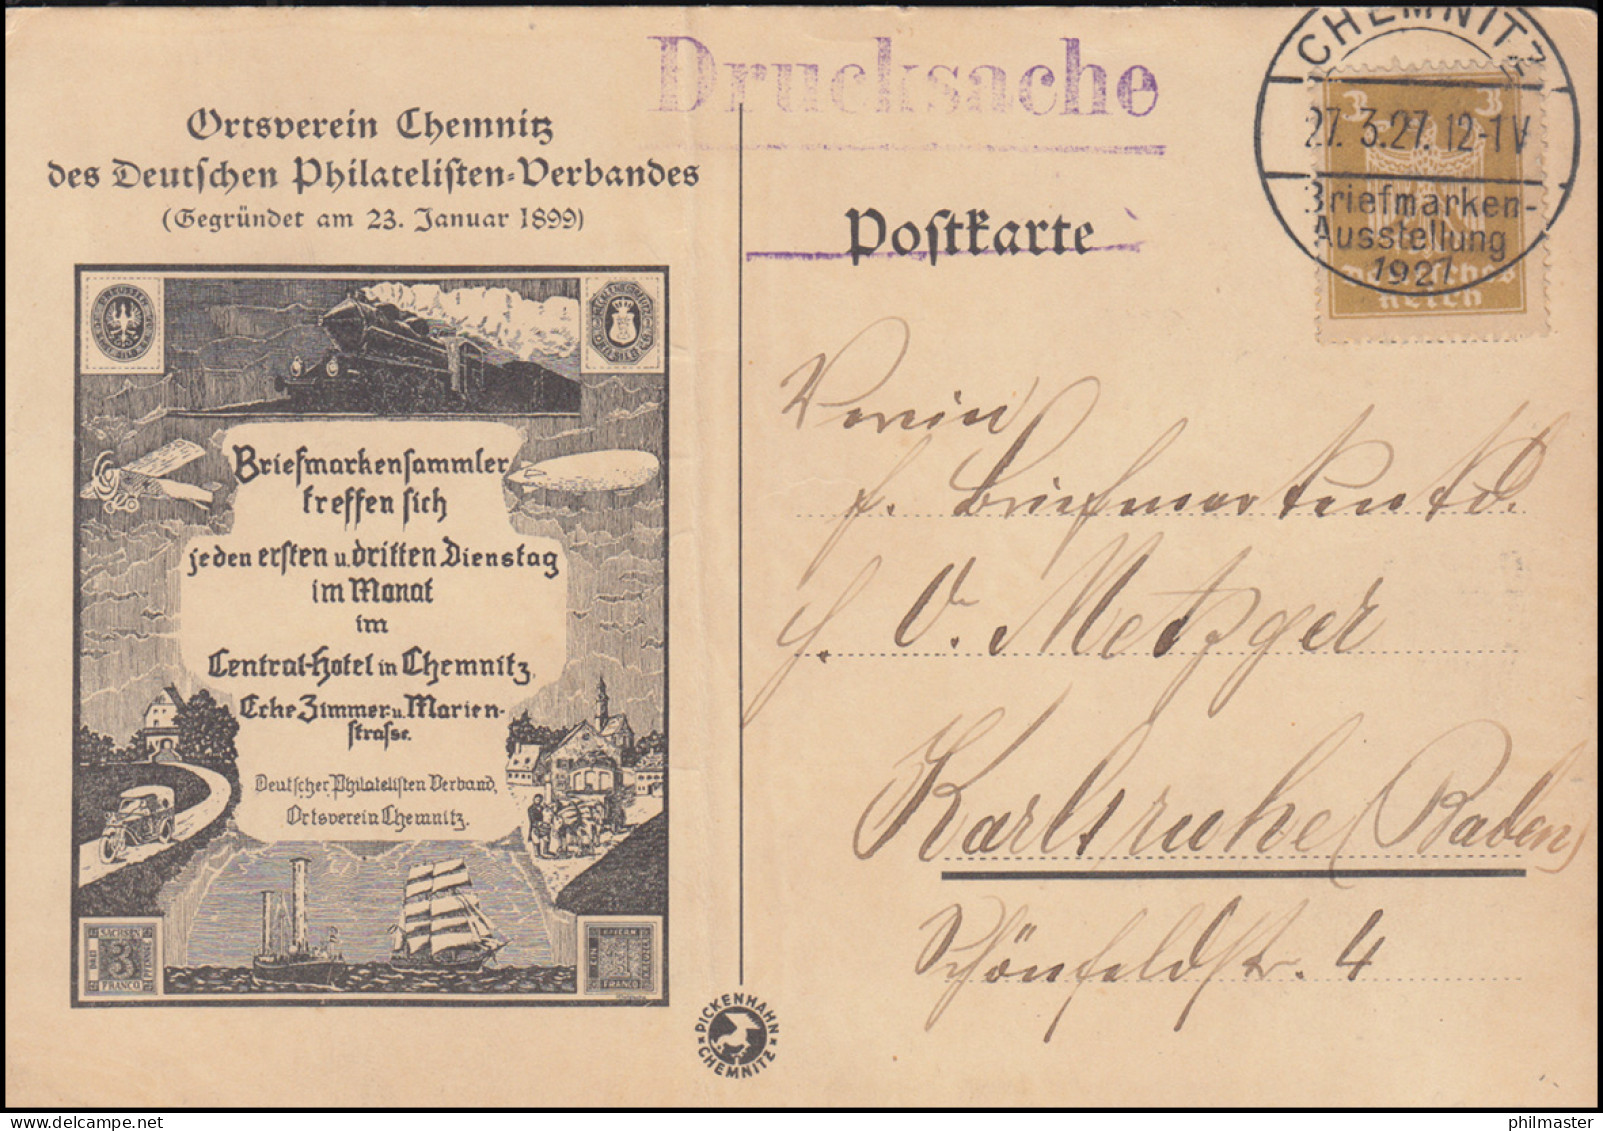 Ortsverein Chemnitz
des Deutschen Philatelisten-Verbandes
(Gegründet am 23. Januar 1899)
PREUSSEN
Briefmarkensammler
treffen sich
jeden ersten u. dritten Dienstag
im Monat
im
Central-Hotel in Chemnitz,
Ecke Zimmer- u. Marien-
strasse.
Deutscher Philatelisten Verband,
Ortsverein Chemnitz.
SACHSEN
DREI
3
PFENNIGE
FRANCO
BAYERN
EIN
1
KREUZER
FRANCO
PICKENHAHN
CHEMNITZ
Drucksache
Postkarte
CHEMNITZ
27. 3.27. 12-1 V
Briefmarken-
Ausstellung
1927
3 3
Deutsches
Reich
Verein
f. Briefmarkenkd.
H. O. Metzger
Karlsruhe (Baden)
Schönfeldstr. 4
philmaster